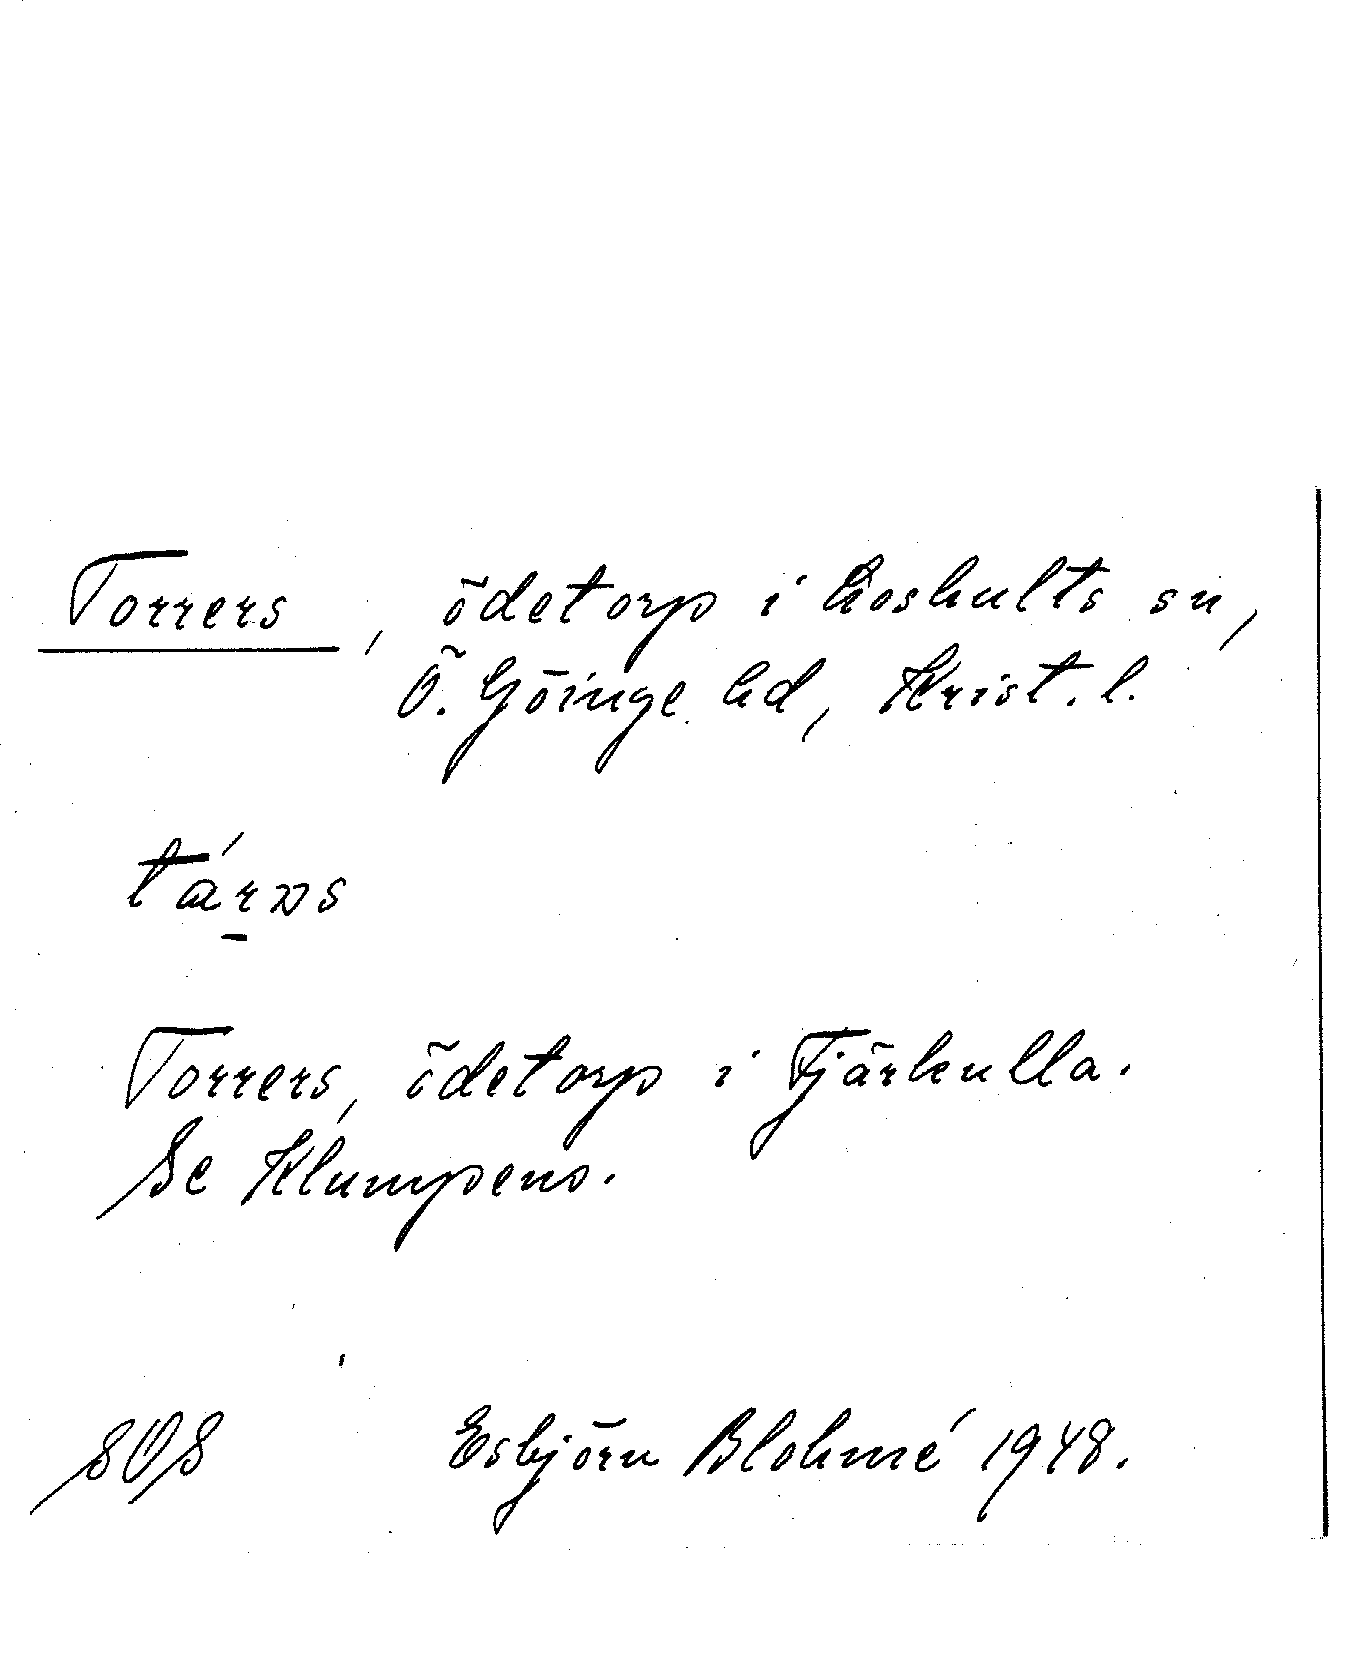 Torrers, ödetorp i Loshults sn,
Ö. Göinge hd, Krist. l.
Torrers, ödetorp i Tjärkulla.
Se Klumpens.
SOS Esbjörn Blohmé 1948.